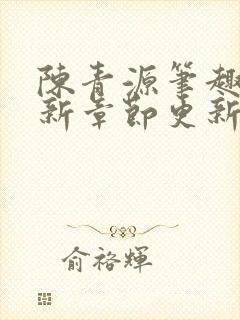 陳青源筆趣
新章節更新
俞裕輝